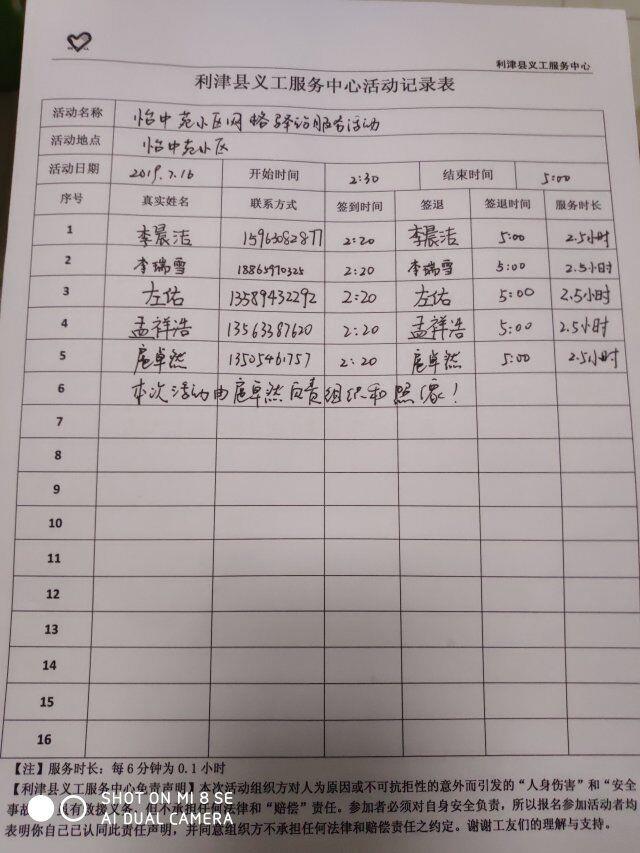 利津县义工服务中心
利津县义工服务中心活动记录表
活动名称 怡中苑小区网格驿站服务活动
活动地点 怡中苑小区
活动日期 2019.7.16 开始时间 2:30 结束时间 5:00
序号 真实姓名 联系方式 签到时间 签退 签退时间 服务时长
1 李晨洁 15963082877 2:20 李晨洁 5:00 2.5小时
2 李瑞雪 18865970325 2:20 李瑞雪 5:00 2.5小时
3 左佑 13589432292 2:20 左佑 5:00 2.5小时
4 孟祥浩 13563387620 2:20 孟祥浩 5:00 2.5小时
5 扈卓然 13505461757 2:20 扈卓然 5:00 2.5小时
6 本次活动由扈卓然负责组织和照像！
7
8
9
10
11
12
13
14
15
16
【注】服务时长：每6分钟为0.1小时
【利津县义工服务中心免责声明】本次活动组织方对人为原因或不可抗拒性的意外而引发的“人身伤害”和“安全
事故 有救援义务，但不承担任何法律和“赔偿”责任。参加者必须对自身安全负责，所以报名参加活动者均
表明你自己已认同此责任声明，并同意组织方不承担任何法律和赔偿责任之约定。谢谢工友们的理解与支持。
SHOT ON MI 8 SE
AI DUAL CAMERA